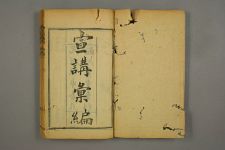 宣講彙編